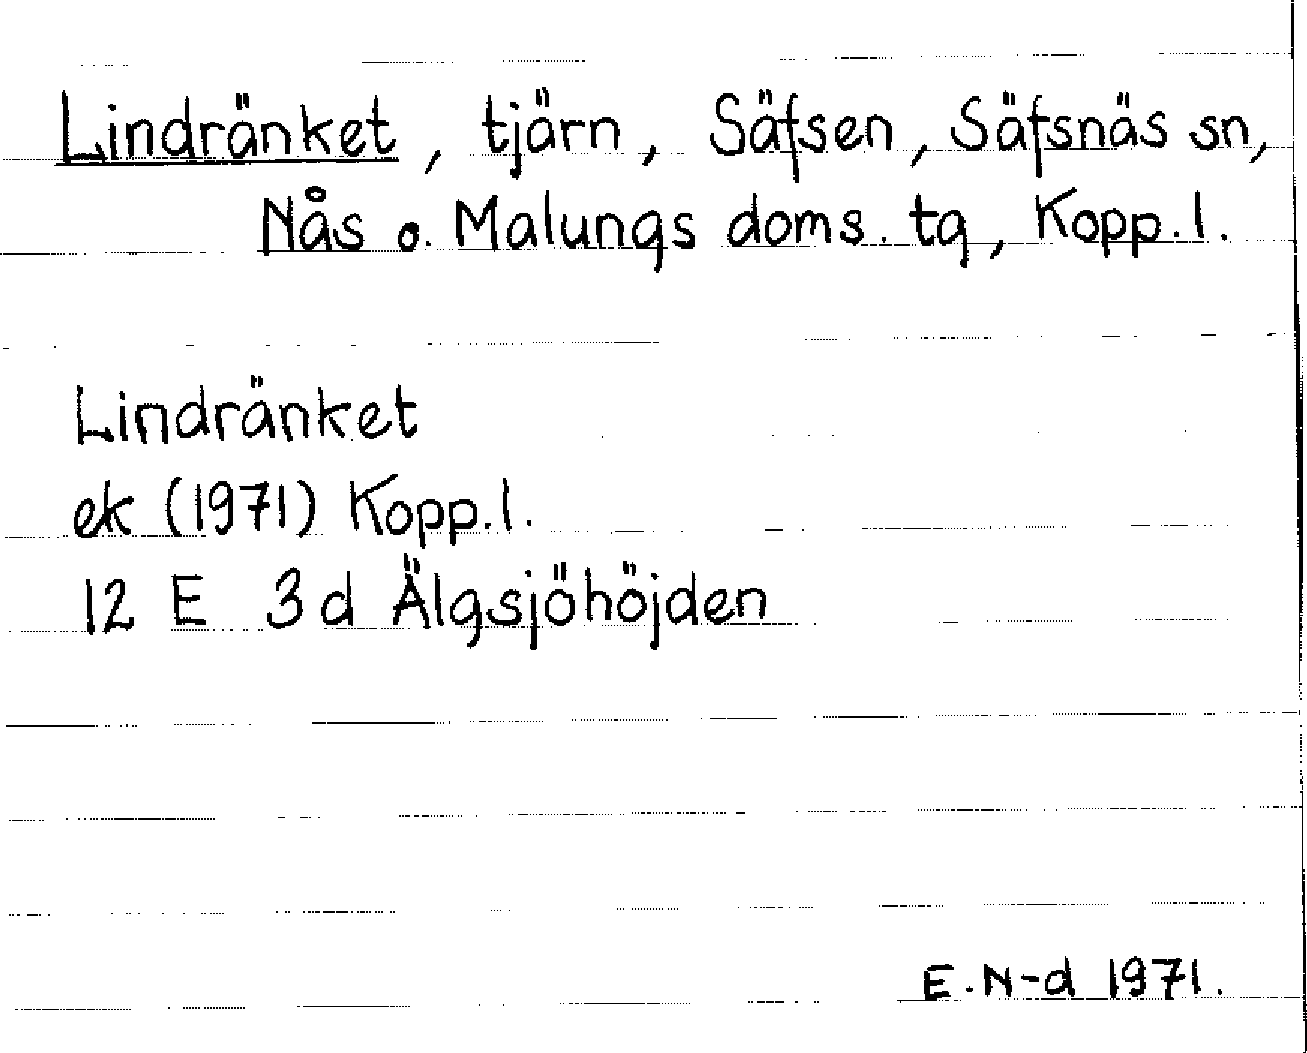 Lindränket, tjärn, Säfsen, Säfsnäs sn,
Nås o. Malungs doms. tg, Kopp. l.
Lindränket
ek (1971) Kopp. l.
12 E 3d Älgsjöhöjden
E. N-d 1971.